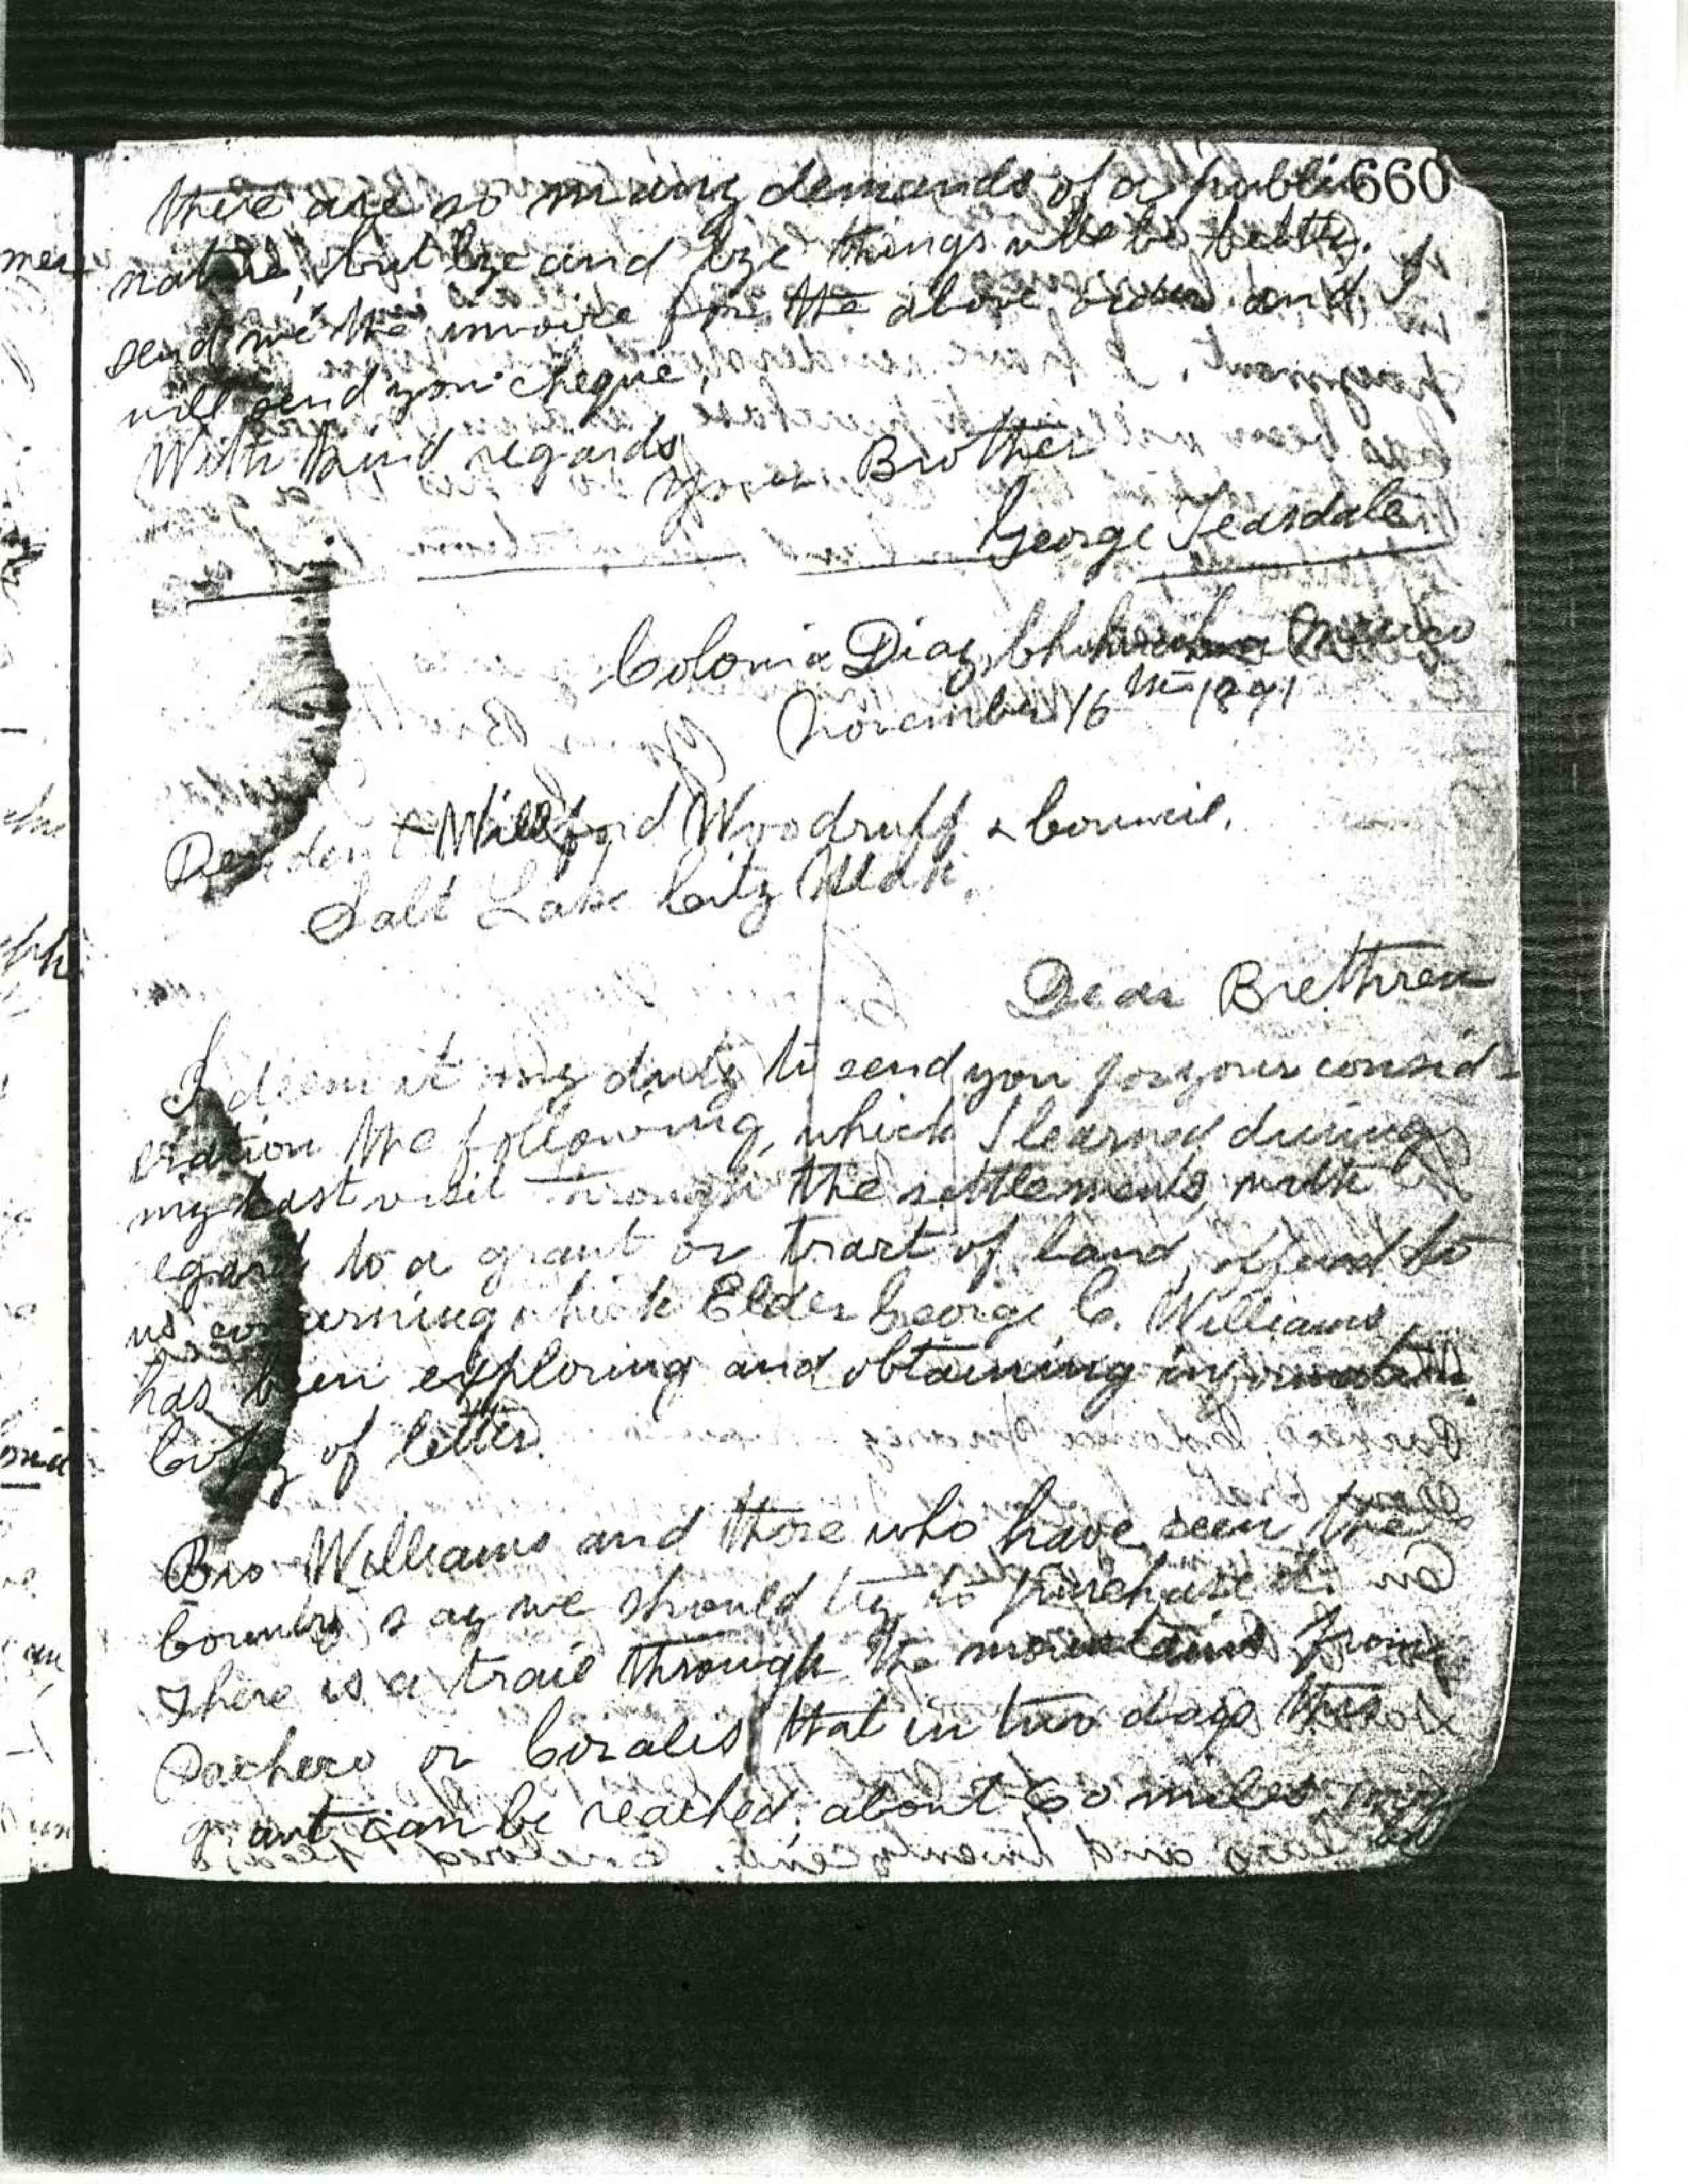 there are so many demands of a public 660
nature, but bye and bye things will be better.
send me the invoice for the above order and I
will send you cheque,
With kind regards
Your Brother
George Teasdale
Colonia Diaz, Chihuahua Mexico
November 16th 1891
President Willford Woodruff & Council.
Salt Lake City Utah.
Dear Brethren
I deem it my duty to send you for your consid-
eration the following, which I learned during
my last visit through the settlements, with
regard to a grant or tract of land, offered to
us concerning which Elder George C. Williams
has been exploring and obtaining information.
Copy of letter.
Bro Williams and those who have seen the
Country say we should try to purchase it.
There is a trail through the mountains from
Pacheco or Corales that in two days this
grant can be reached, about 60 miles